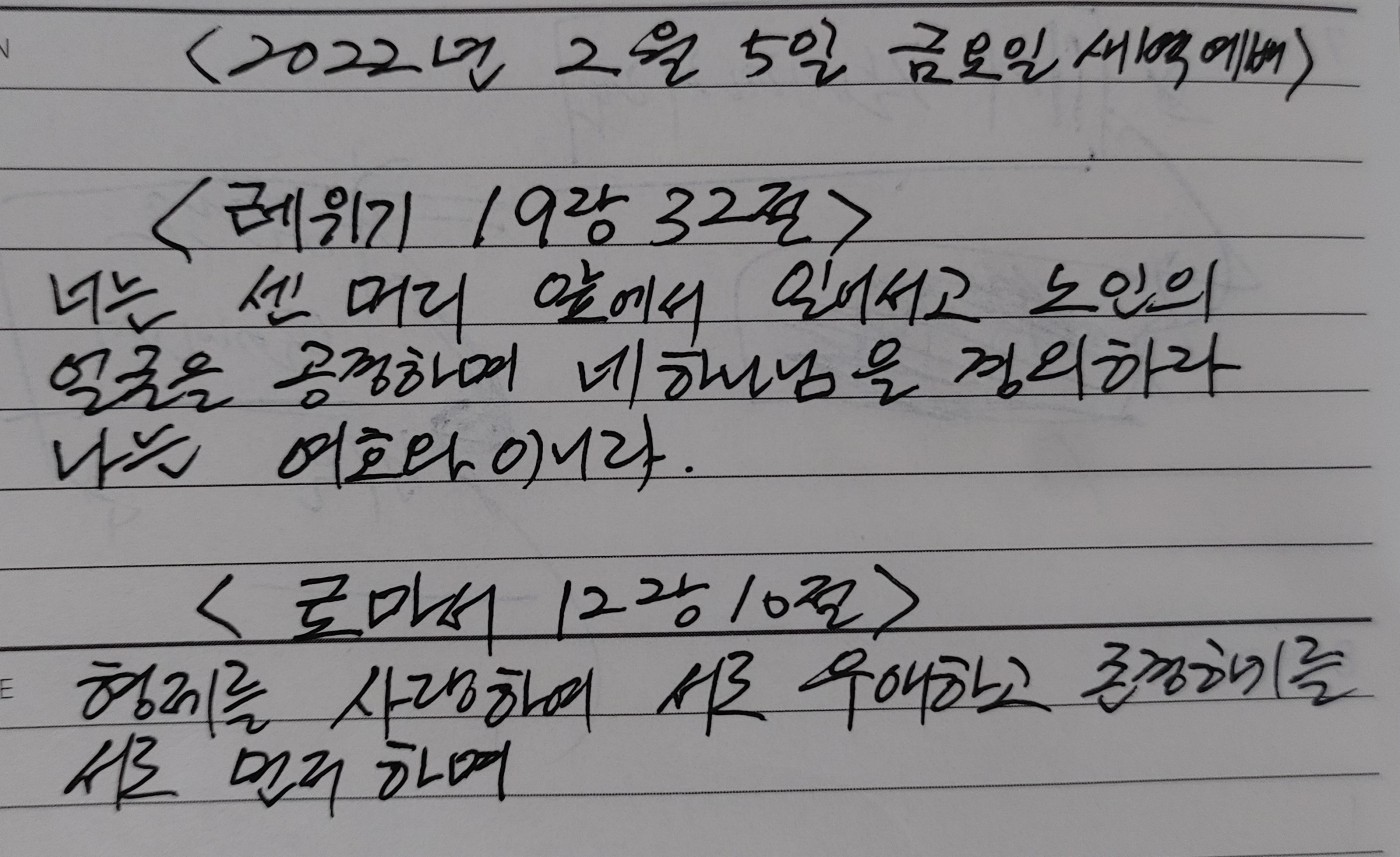 <2022년 2월 5일 금요일 새벽예배>
<레위기 19장 32절>
너는 센 머리 앞에서 일어서고 노인의
얼굴을 공경하며 네 하나님을 경외하라
나는 여호와이니라.
<로마서 12장 10절>
형제를 사랑하여 서로 우애하고 존경하기를
서로 먼저 하며